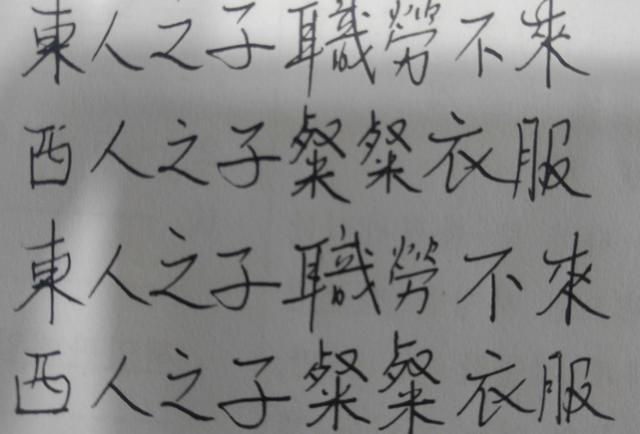 東人之子職勞不來
西人之子粲粲衣服
東人之子職勞不來
西人之子粲粲衣服